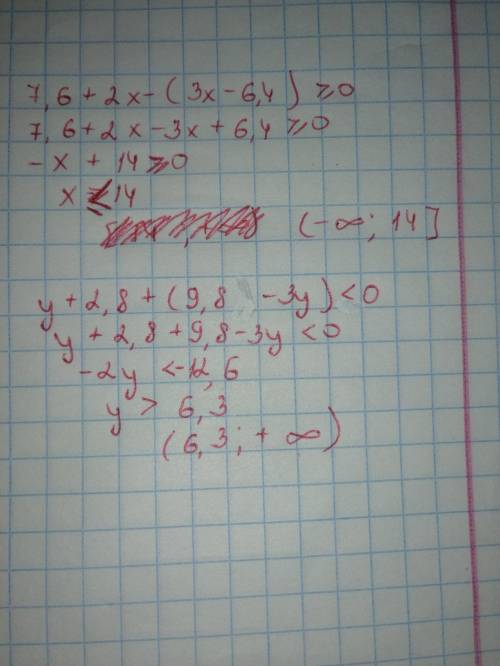 7,6 + 2x - (3x - 6,4) ⩾ 0
7,6 + 2x - 3x + 6,4 ⩾ 0
- x + 14 ⩾ 0
x ≤ 14
(-∞; 14]
y + 2,8 + (9,8 - 3y) < 0
y + 2,8 + 9,8 - 3y < 0
- 2y < -12,6
y > 6,3
(6,3; + ∞)